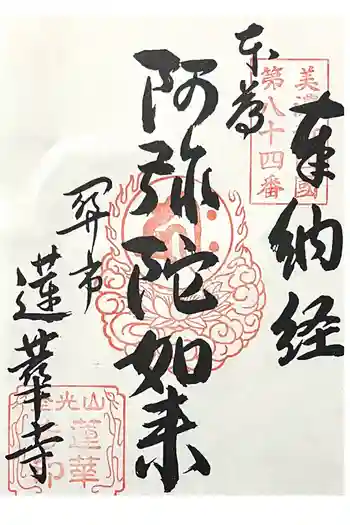 奉納経
美濃西国
第八十四番
本尊
阿弥陀如来
関市
蓮華寺
蓮華